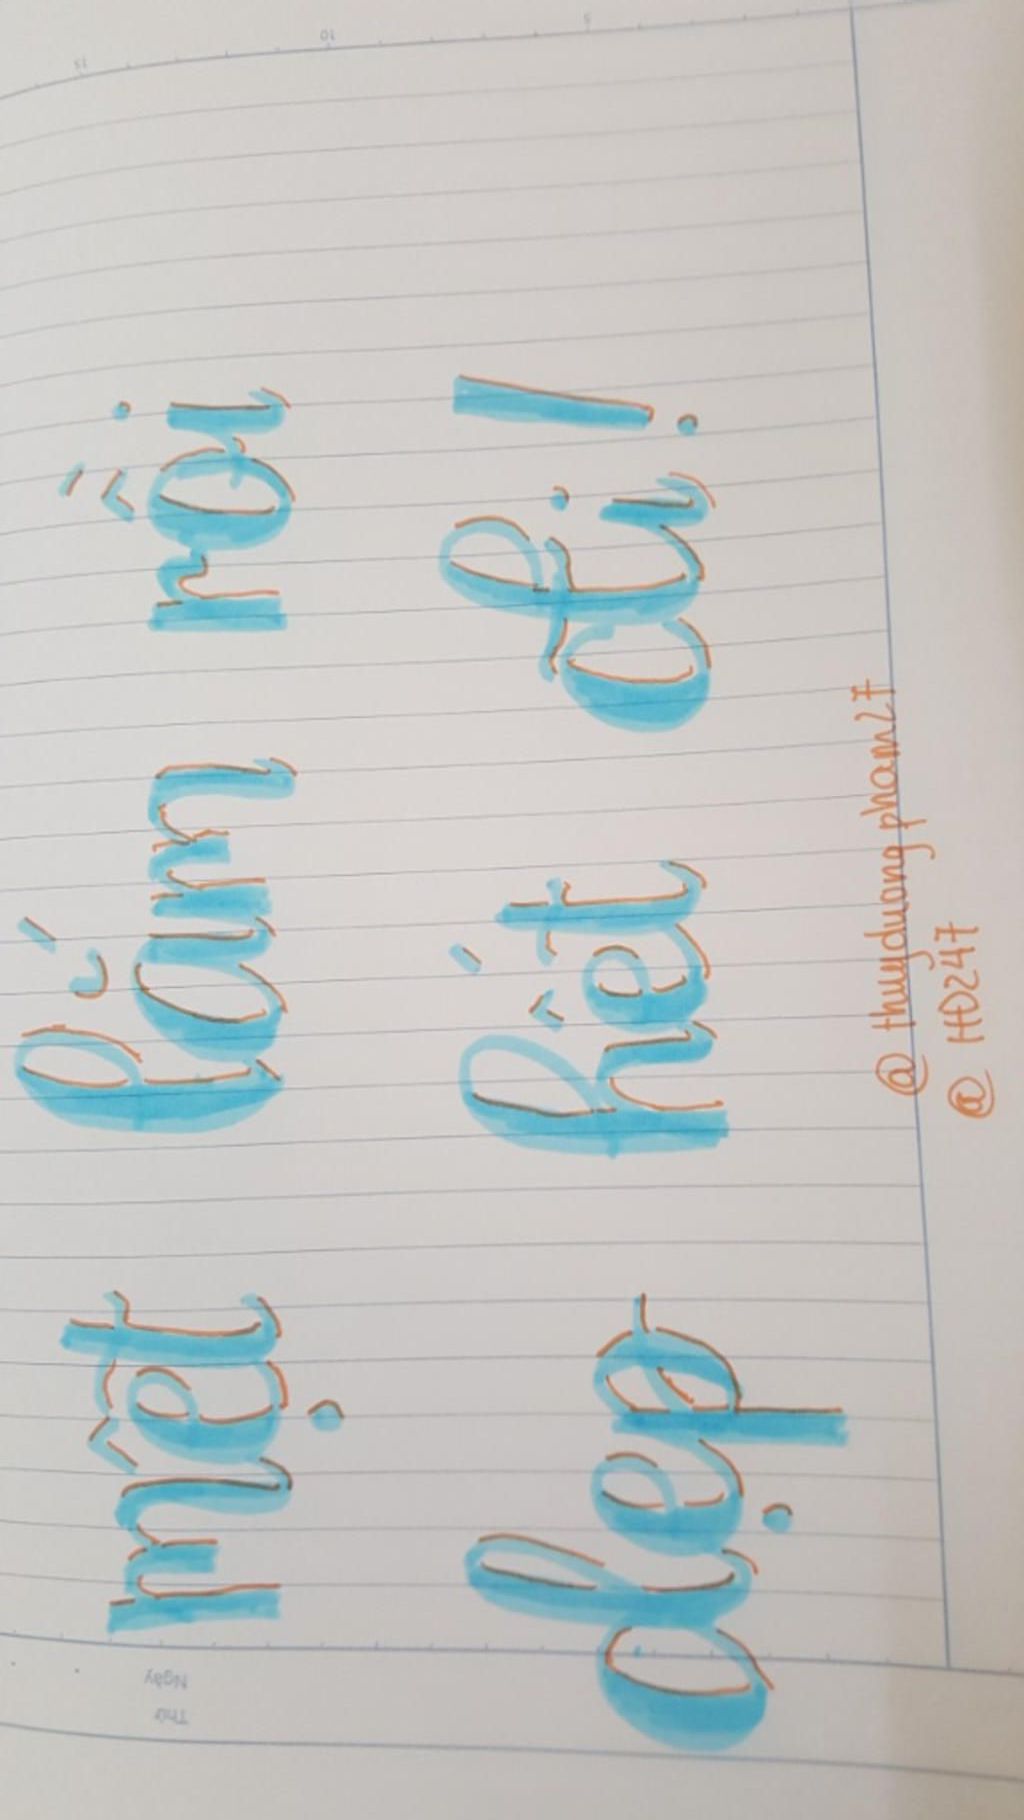 mệt lắm rồi
đẹp hết đi!
@ thuyduongpham27
@ HĐ247
Thứ
Ngày
5
10
15